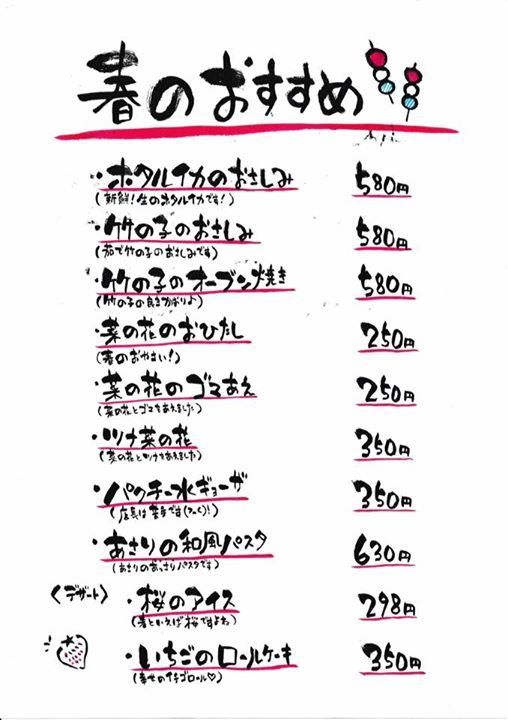 春のおすすめ
・ホタルイカのおさしみ 580円
(新鮮!生のホタルイカです!)
・竹の子のおさしみ 580円
(茹で竹の子のおさしみです)
・竹の子のオーブン焼き 580円
(竹の子の良きかおりよ)
・菜の花のおひたし 250円
(春のおやさい!)
・菜の花のゴマあえ 250円
(菜の花とゴマをあえました)
・ツナ菜の花 350円
(菜の花とツナをあえました)
・パクチー水ギョーザ 350円
(店長は苦手です
・あさりの和風パスタ 630円
(あさりのあっさりパスタです)
〈デザート〉
・桜のアイス 298円
(春といえば桜ですよね)
・いちごのロールケーキ 350円
(幸せのイチゴロール♡)